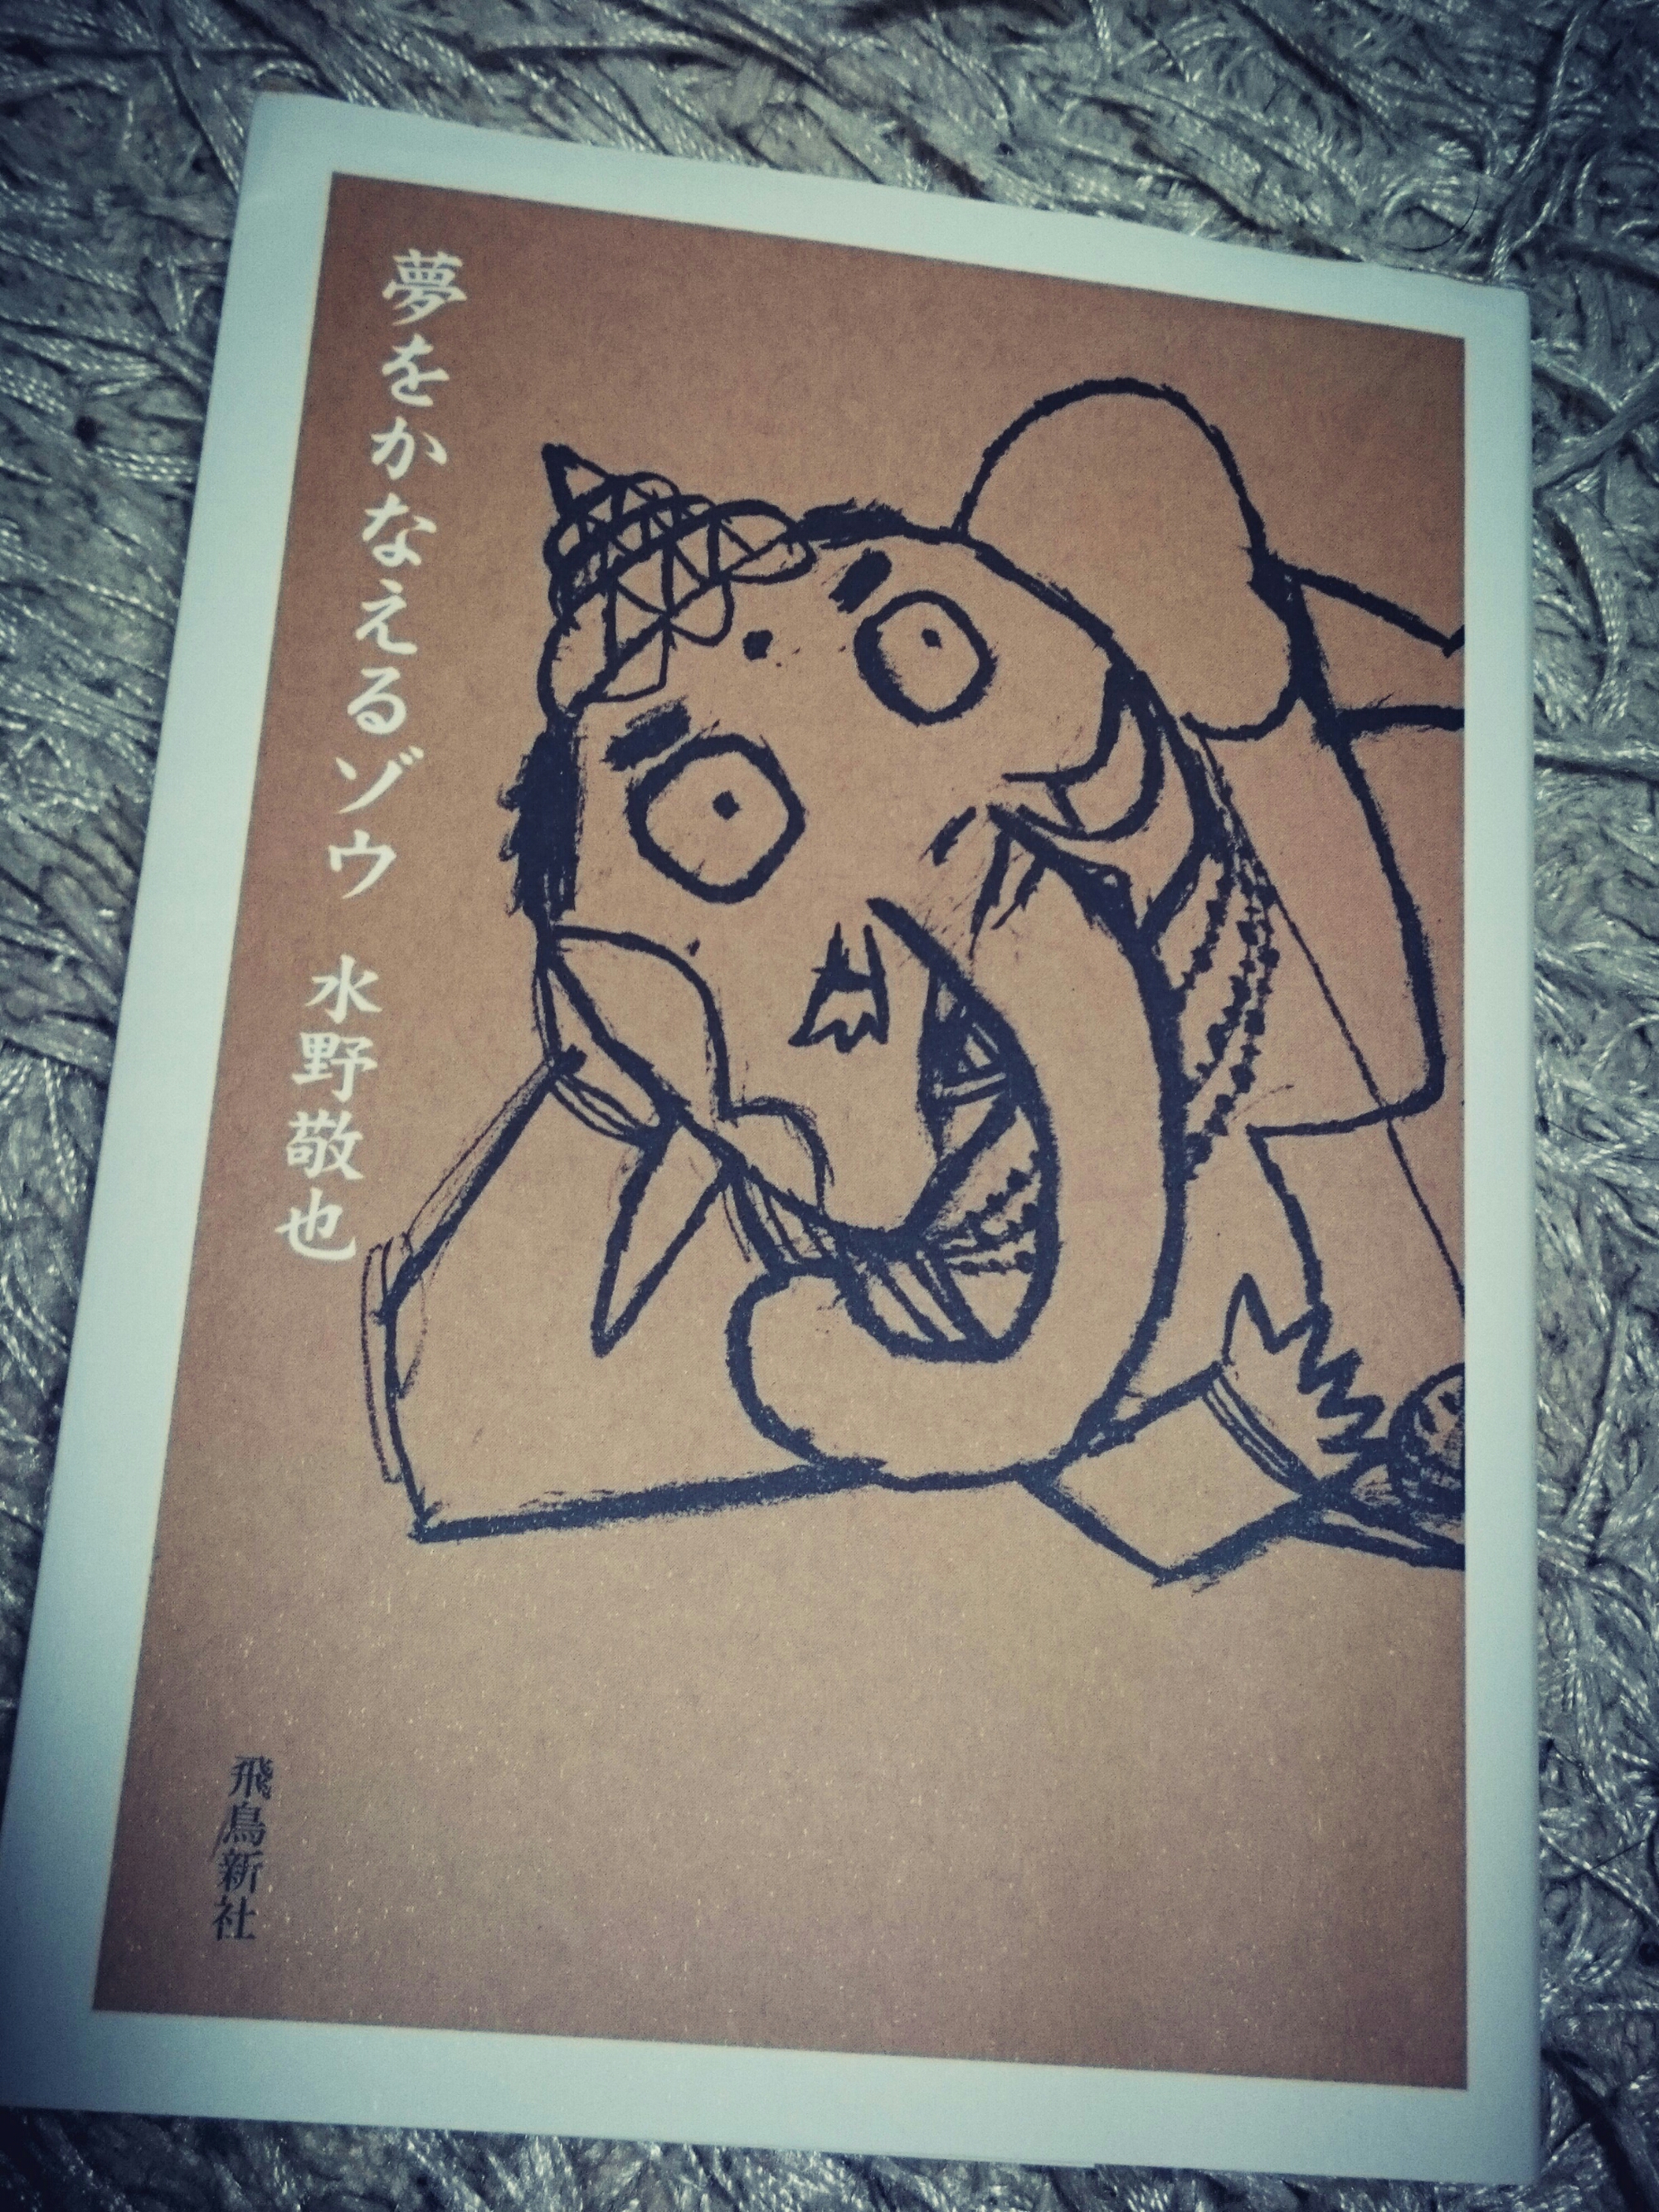 夢をかなえるゾウ 水野敬也
飛鳥新社